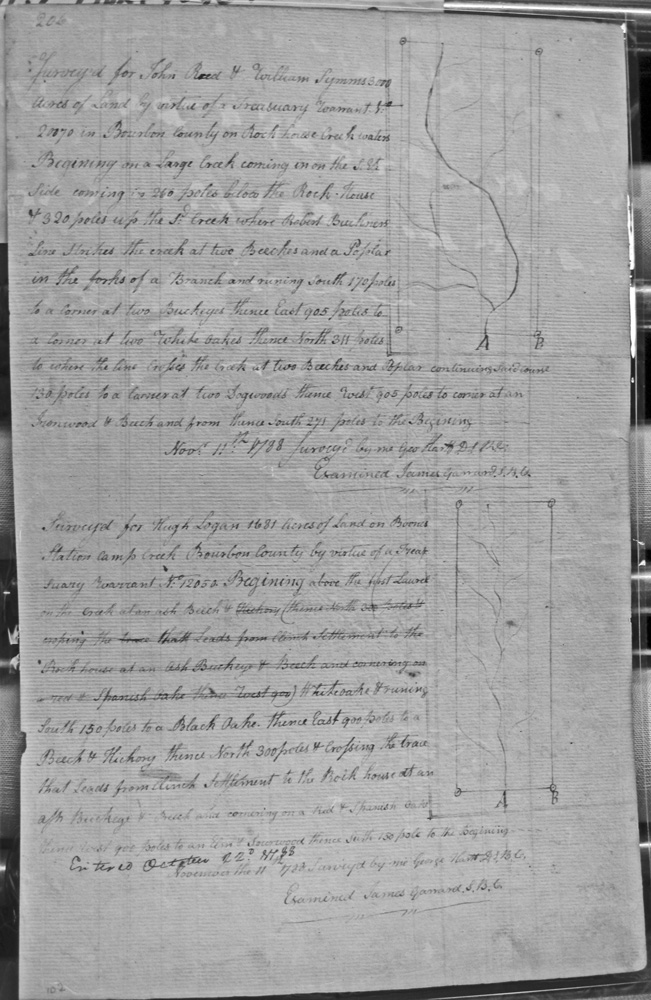 206
Surveyd for John Reed & William Symms 3000
Acres of Land by virtue of a Treasuary Warrant No
20070 in Bourbon County on Rock house Creek waters
Begining on a Large Creek coming in on the S. Et
Side coming in 260 poles below the Rock-House
& 320 poles up the Sd Creek where Robert Buckners
Line Strikes the creek at two Beeches and a Poplar
in the forks of a Branch and runing South 170 poles
to a Corner at two Buckeyes thence East 905 poles to
a Corner at two White oakes thence North 311 poles
to where the line Crosses the Creek at two Beeches and Poplar continuing Said course
130 poles to a Corner at two Dogwoods thence West 905 poles to corner at an
Ironwood & Beech and from thence South 271 poles to the Begining
Novr. 11th 1788 Survey'd by me Geo Hart D.S.B.C.
Examined James Garrard S.B.C.
A B
Surveyd for Hugh Logan 1681 Acres of Land on Boons
Station Camp Creek Bourbon County by virtue of a Treas
suary Warrant No. 12050. Begining above the first Laurel
on the Creek at an ash Beech & Hickory (thence North 300 poles &
crosping the trace thatt Leads from Clinch Settlement to the
Rock house at an Ash Buckeye & Beech and cornering on
a red & Spanish oake thence West 900) Whiteoake & runing
South 150 poles to a Black Oake. thence East 900 poles to a
Beech & Hickory thence North 300 poles & Crossing the trace
that Leads from Clinch Settlement to the Rock house at an
ash Buckeye & Beech and cornering on a Red & Spanish oake
thence West 900 poles to an Elm & Sourwood thence South 150 pole to the Begining
Entered October 22d 1788
November the 11th 1788 Survey'd by me George Hart D.S.B.C.
Examined James Garrard S.B.C.
A B
102